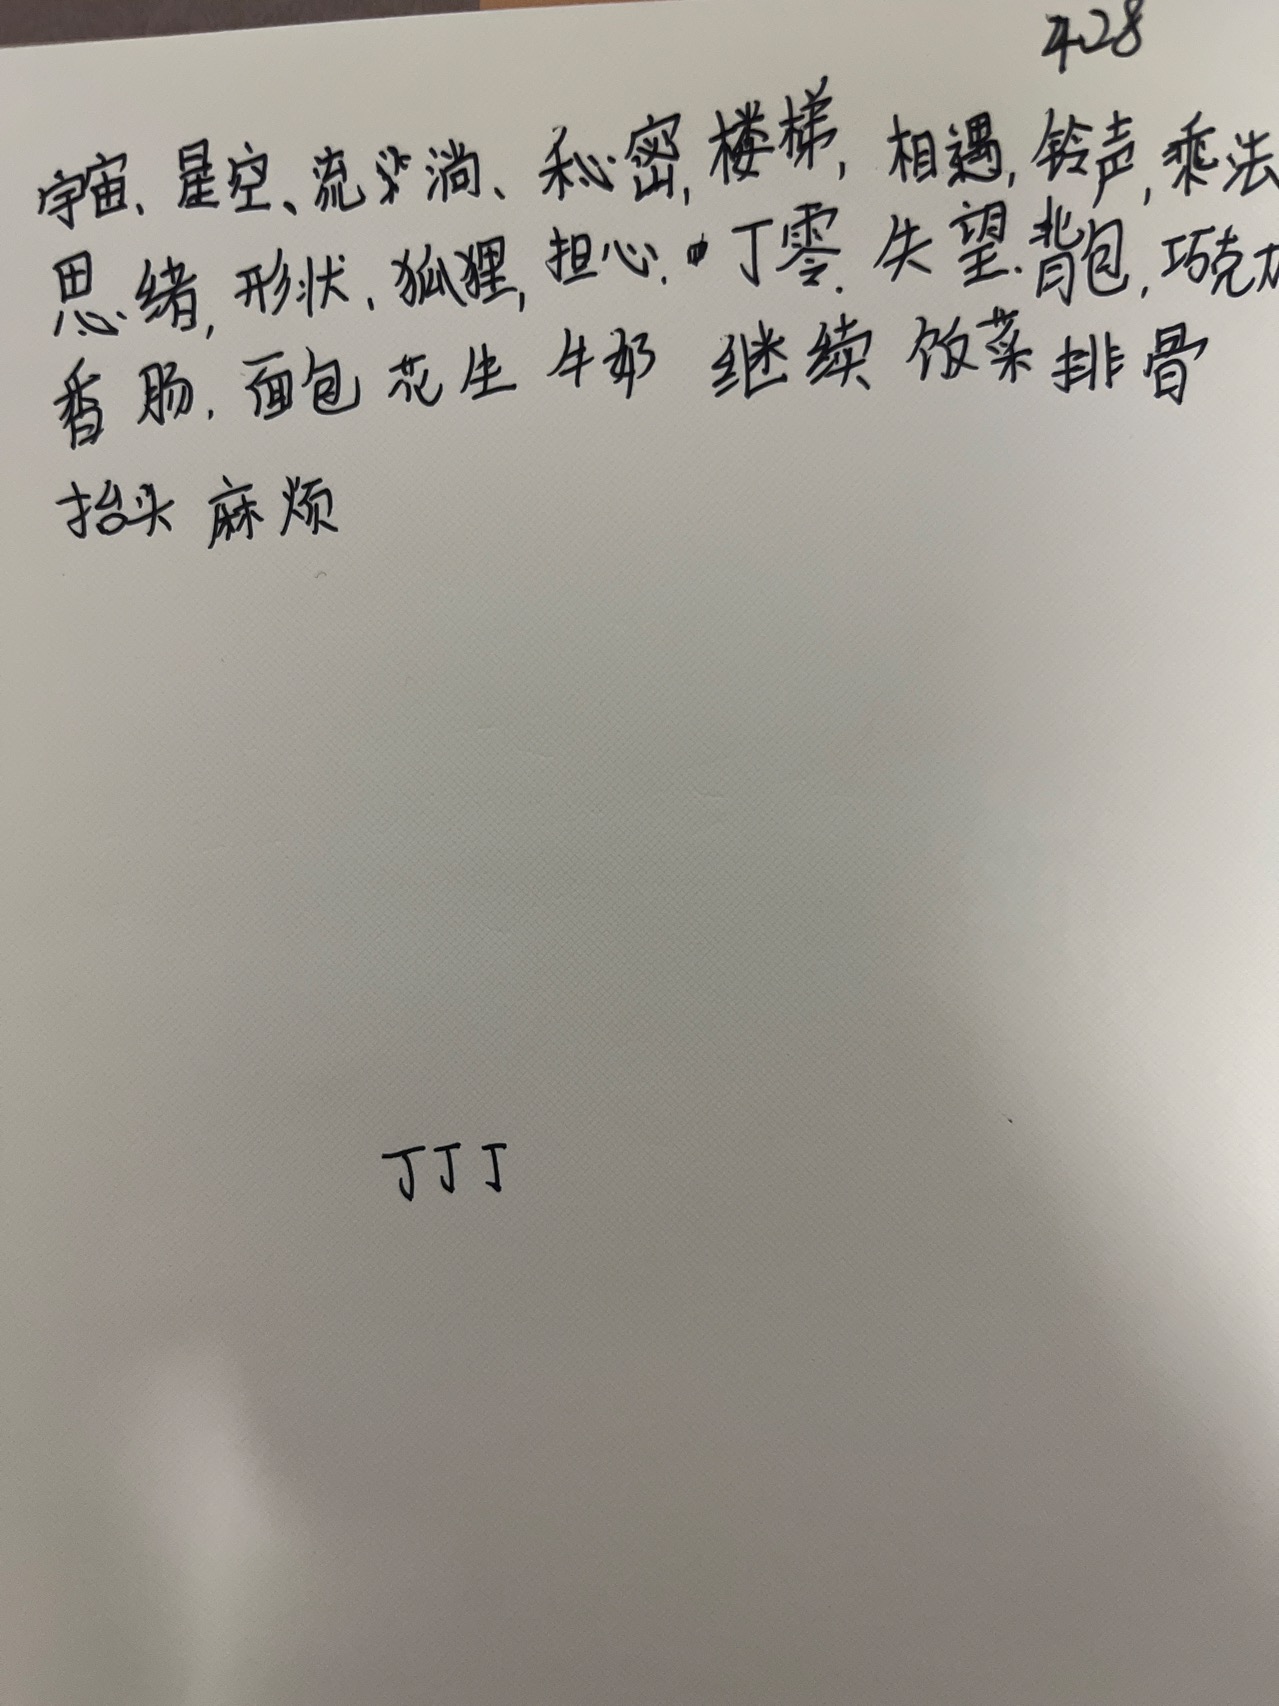 4.28
宇宙、星空、流淌、秘密,楼梯,相遇,铃声,乘法
思绪,形状,狐狸,担心.丁零.失望.背包,巧克力
香肠.面包 花生 牛奶 继续 饭菜 排骨
抬头 麻烦
丁丁丁